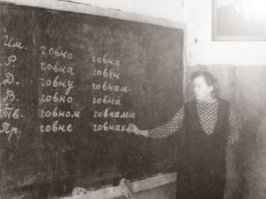 Им. говно говна
Р. говна говен
Д. говну говнам
В. говно говна
Тв. говном говнами
Пр. говне говнах